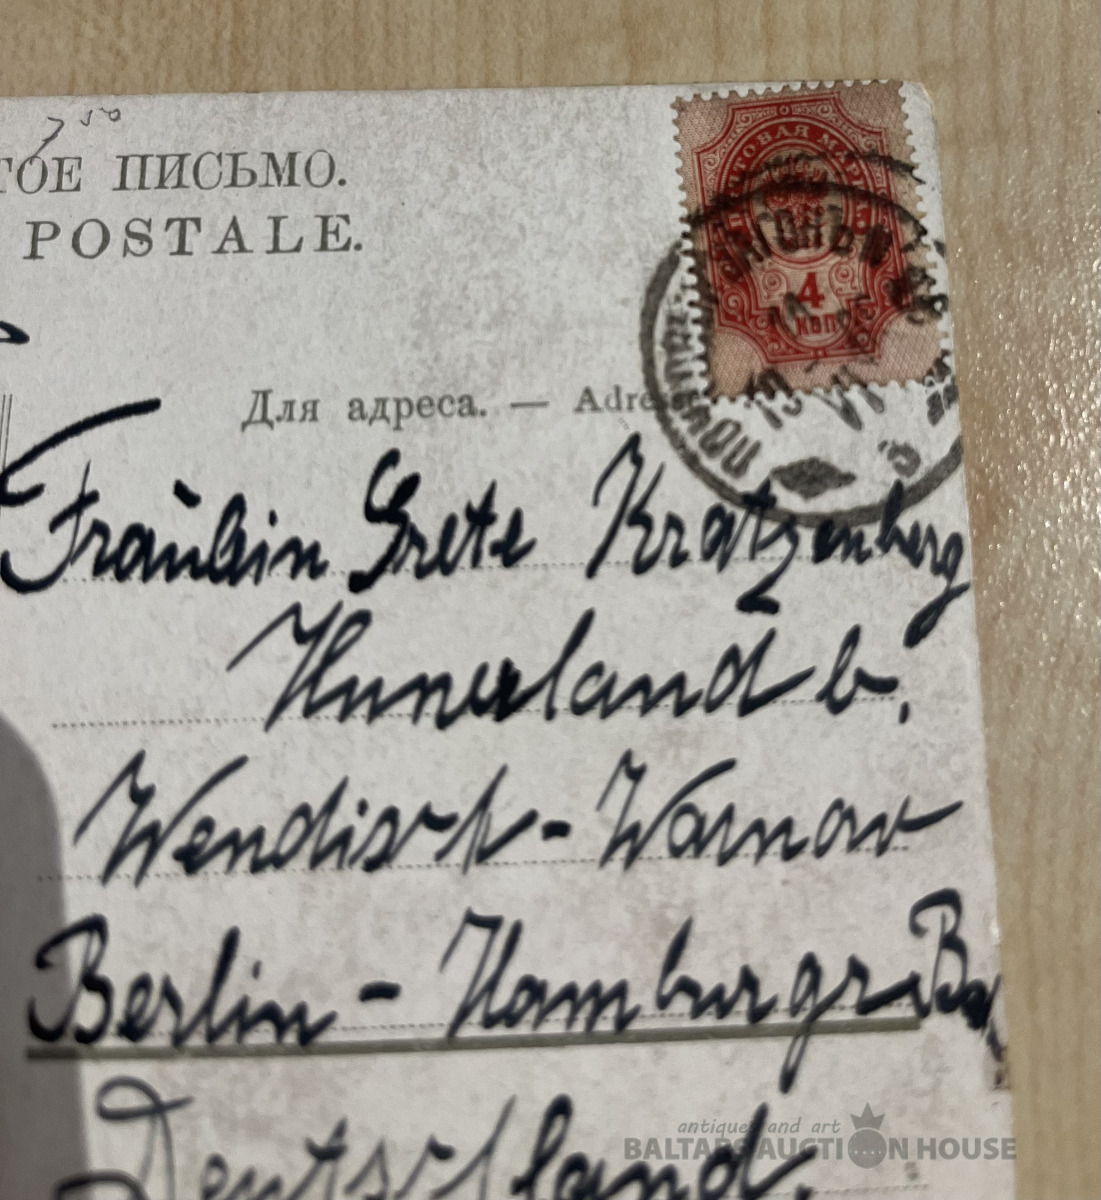 ТОЕ ПИСЬМО.
POSTALE.
ПОЧТОВАЯ МАРКА
4
КОП
Для адреса. — Adre
Fräulein Grete Kratzenberg
Hunerland b.
Wendisch-Warnow
Berlin-Hamburger Ba
Deutschland.
antiques and art
BALTARS AUCTION HOUSE